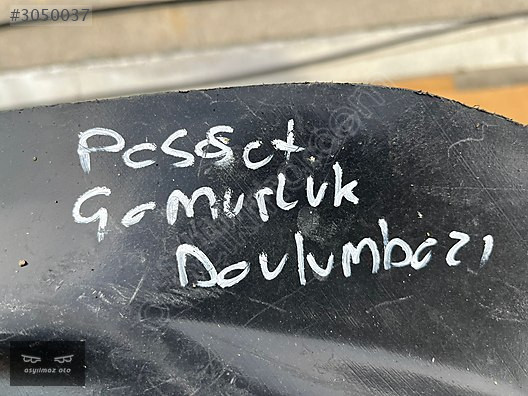 #3050037
Passat
Çamurluk
Davlumbazı
asyılmaz oto